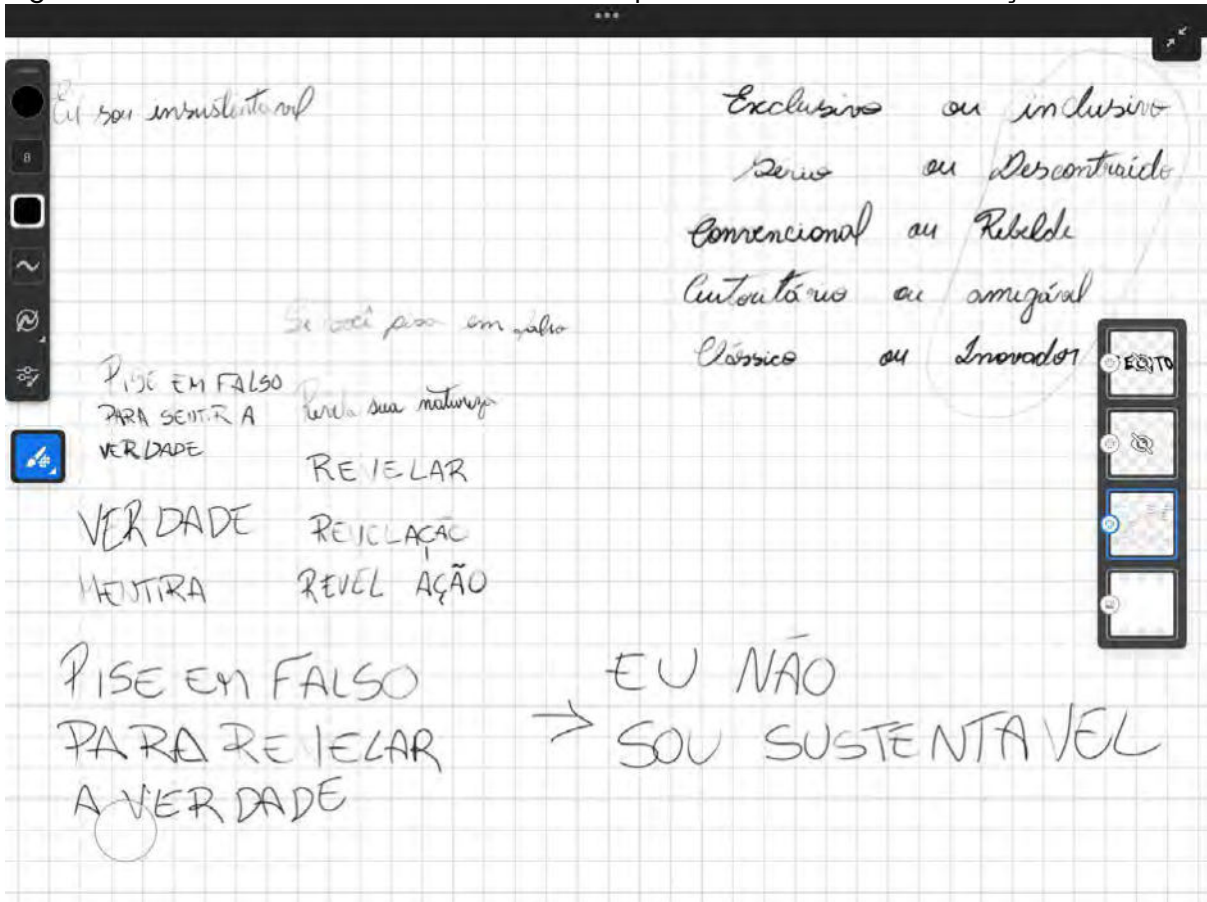 Eu sou insustentavel
Exclusivo ou inclusivo
Serio ou Descontraído
Convencional ou Rebelde
Autoritário ou amigával
Clássico ou Inovador
Se você pisa em falso
PISE EM FALSO
PARA SENTIR A
VERDADE
sua natureza
REVELAR
VERDADE
REVELAÇÃO
MENTIRA
REVEL AÇÃO
PISE EM FALSO
PARA REVELAR
A VERDADE
→ EU NÃO
SOU SUSTENTAVEL
8